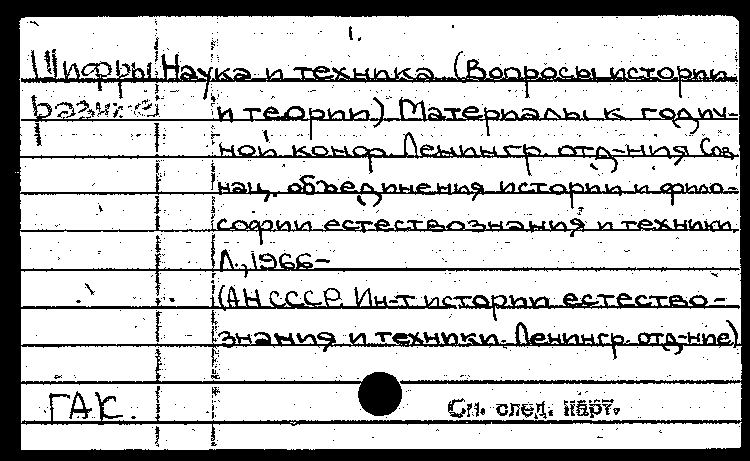 1.
Шифры Наука и техника (Вопросы истории
разные и теории). Материалы к годич-
ной конф. Ленингр. отд-ния Сов.
нац. объединения истории и фило-
софии естествознания и техники.
Л., 1966-
(АН СССР. Ин-т истории естество-
знания и техники. Ленингр. отд-ние)
ГАК.
См. след. карт.